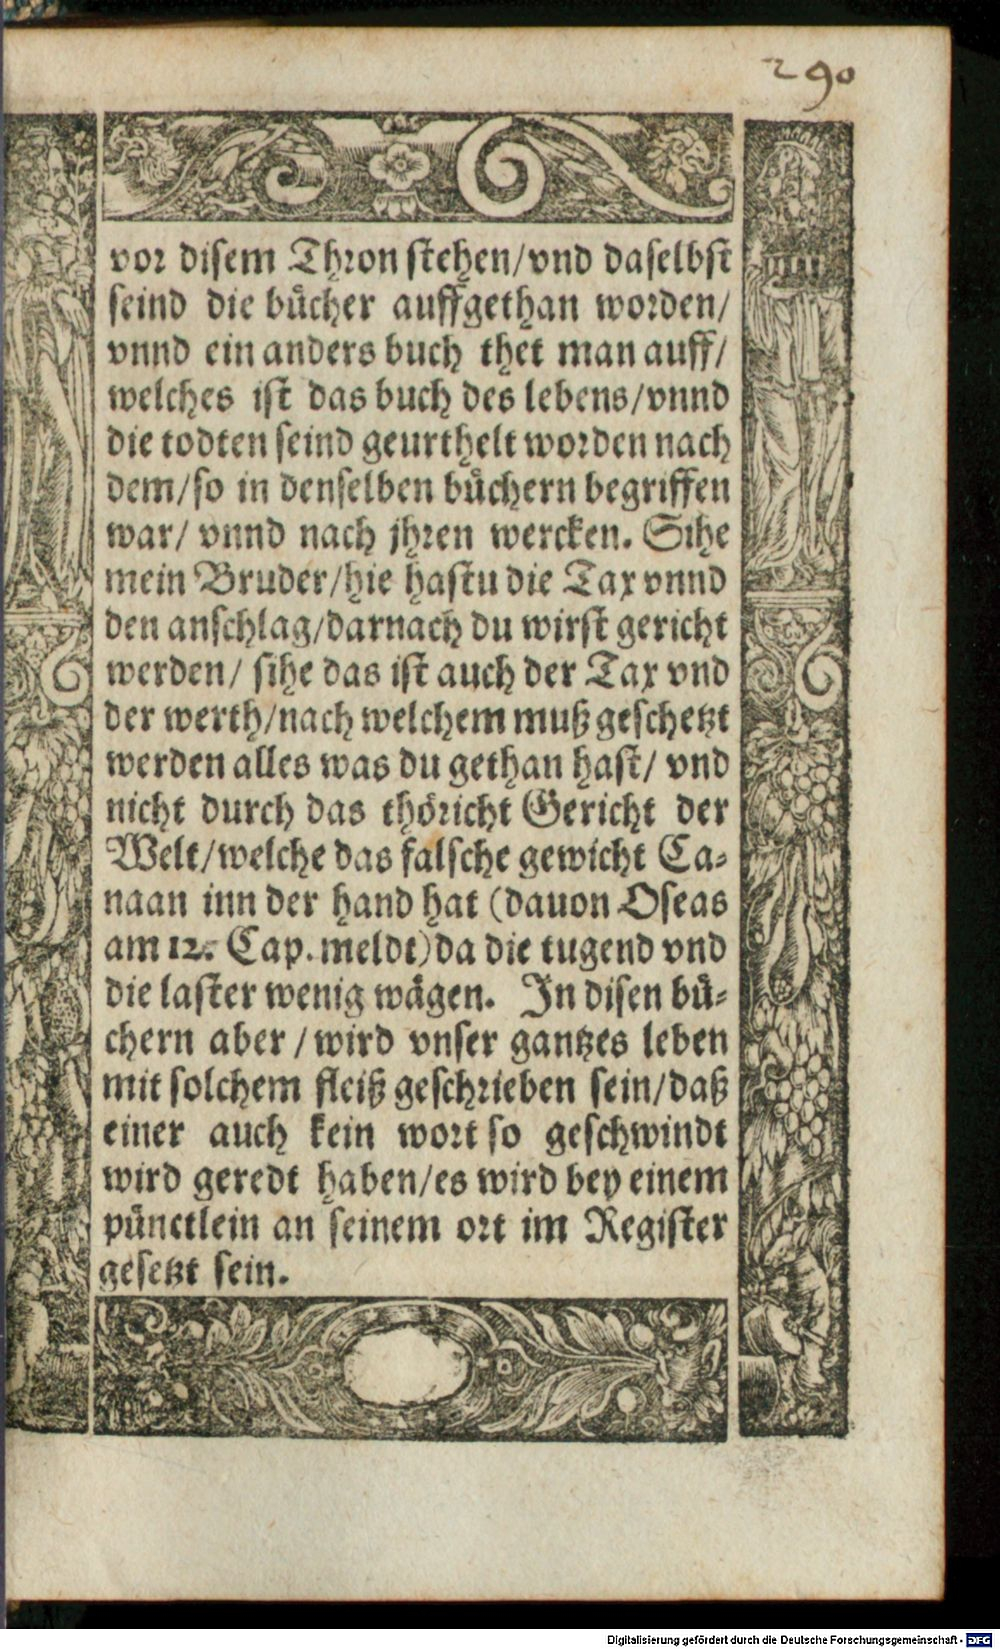 290
vor disem Thron stehen/vnd daselbst
seind die bücher auffgethan worden/
vnnd ein anders buch thet man auff/
welches ist das buch des lebens/vnnd
die todten seind geurthelt worden nach
dem/so in denselben büchern begriffen
war/ vnnd nach jhren wercken. Sihe
mein Bruder/hie hastu die Tax vnnd
den anschlag/darnach du wirst gericht
werden/ sihe das ist auch der Tax vnd
der werth/nach welchem muß geschetzt
werden alles was du gethan hast/ vnd
nicht durch das thöricht Gericht der
Welt/welche das falsche gewicht Ca-
naan inn der hand hat (dauon Oseas
am 12. Cap. meldt) da die tugend vnd
die laster wenig wägen. In disen bü-
chern aber / wird vnser gantzes leben
mit solchem fleiß geschrieben sein/daß
einer auch kein wort so geschwindt
wird geredt haben/es wird bey einem
pünctlein an seinem ort im Register
gesetzt sein.
Digitalisierung gefördert durch die Deutsche Forschungsgemeinschaft - DFG